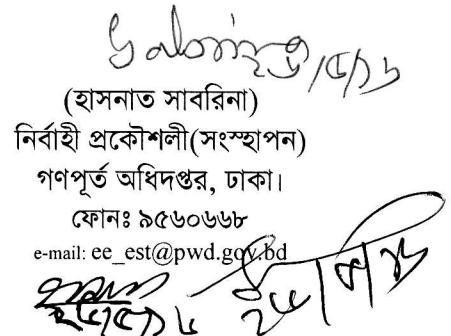 (হাসনাত সাবরিনা)
নির্বাহী প্রকৌশলী(সংস্হাপন)
গণপূর্ত অধিদপ্তর, ঢাকা।
ফোনঃ ৯৫৬০৬৬৮
e-mail: ee_est@pwd.gov.bd